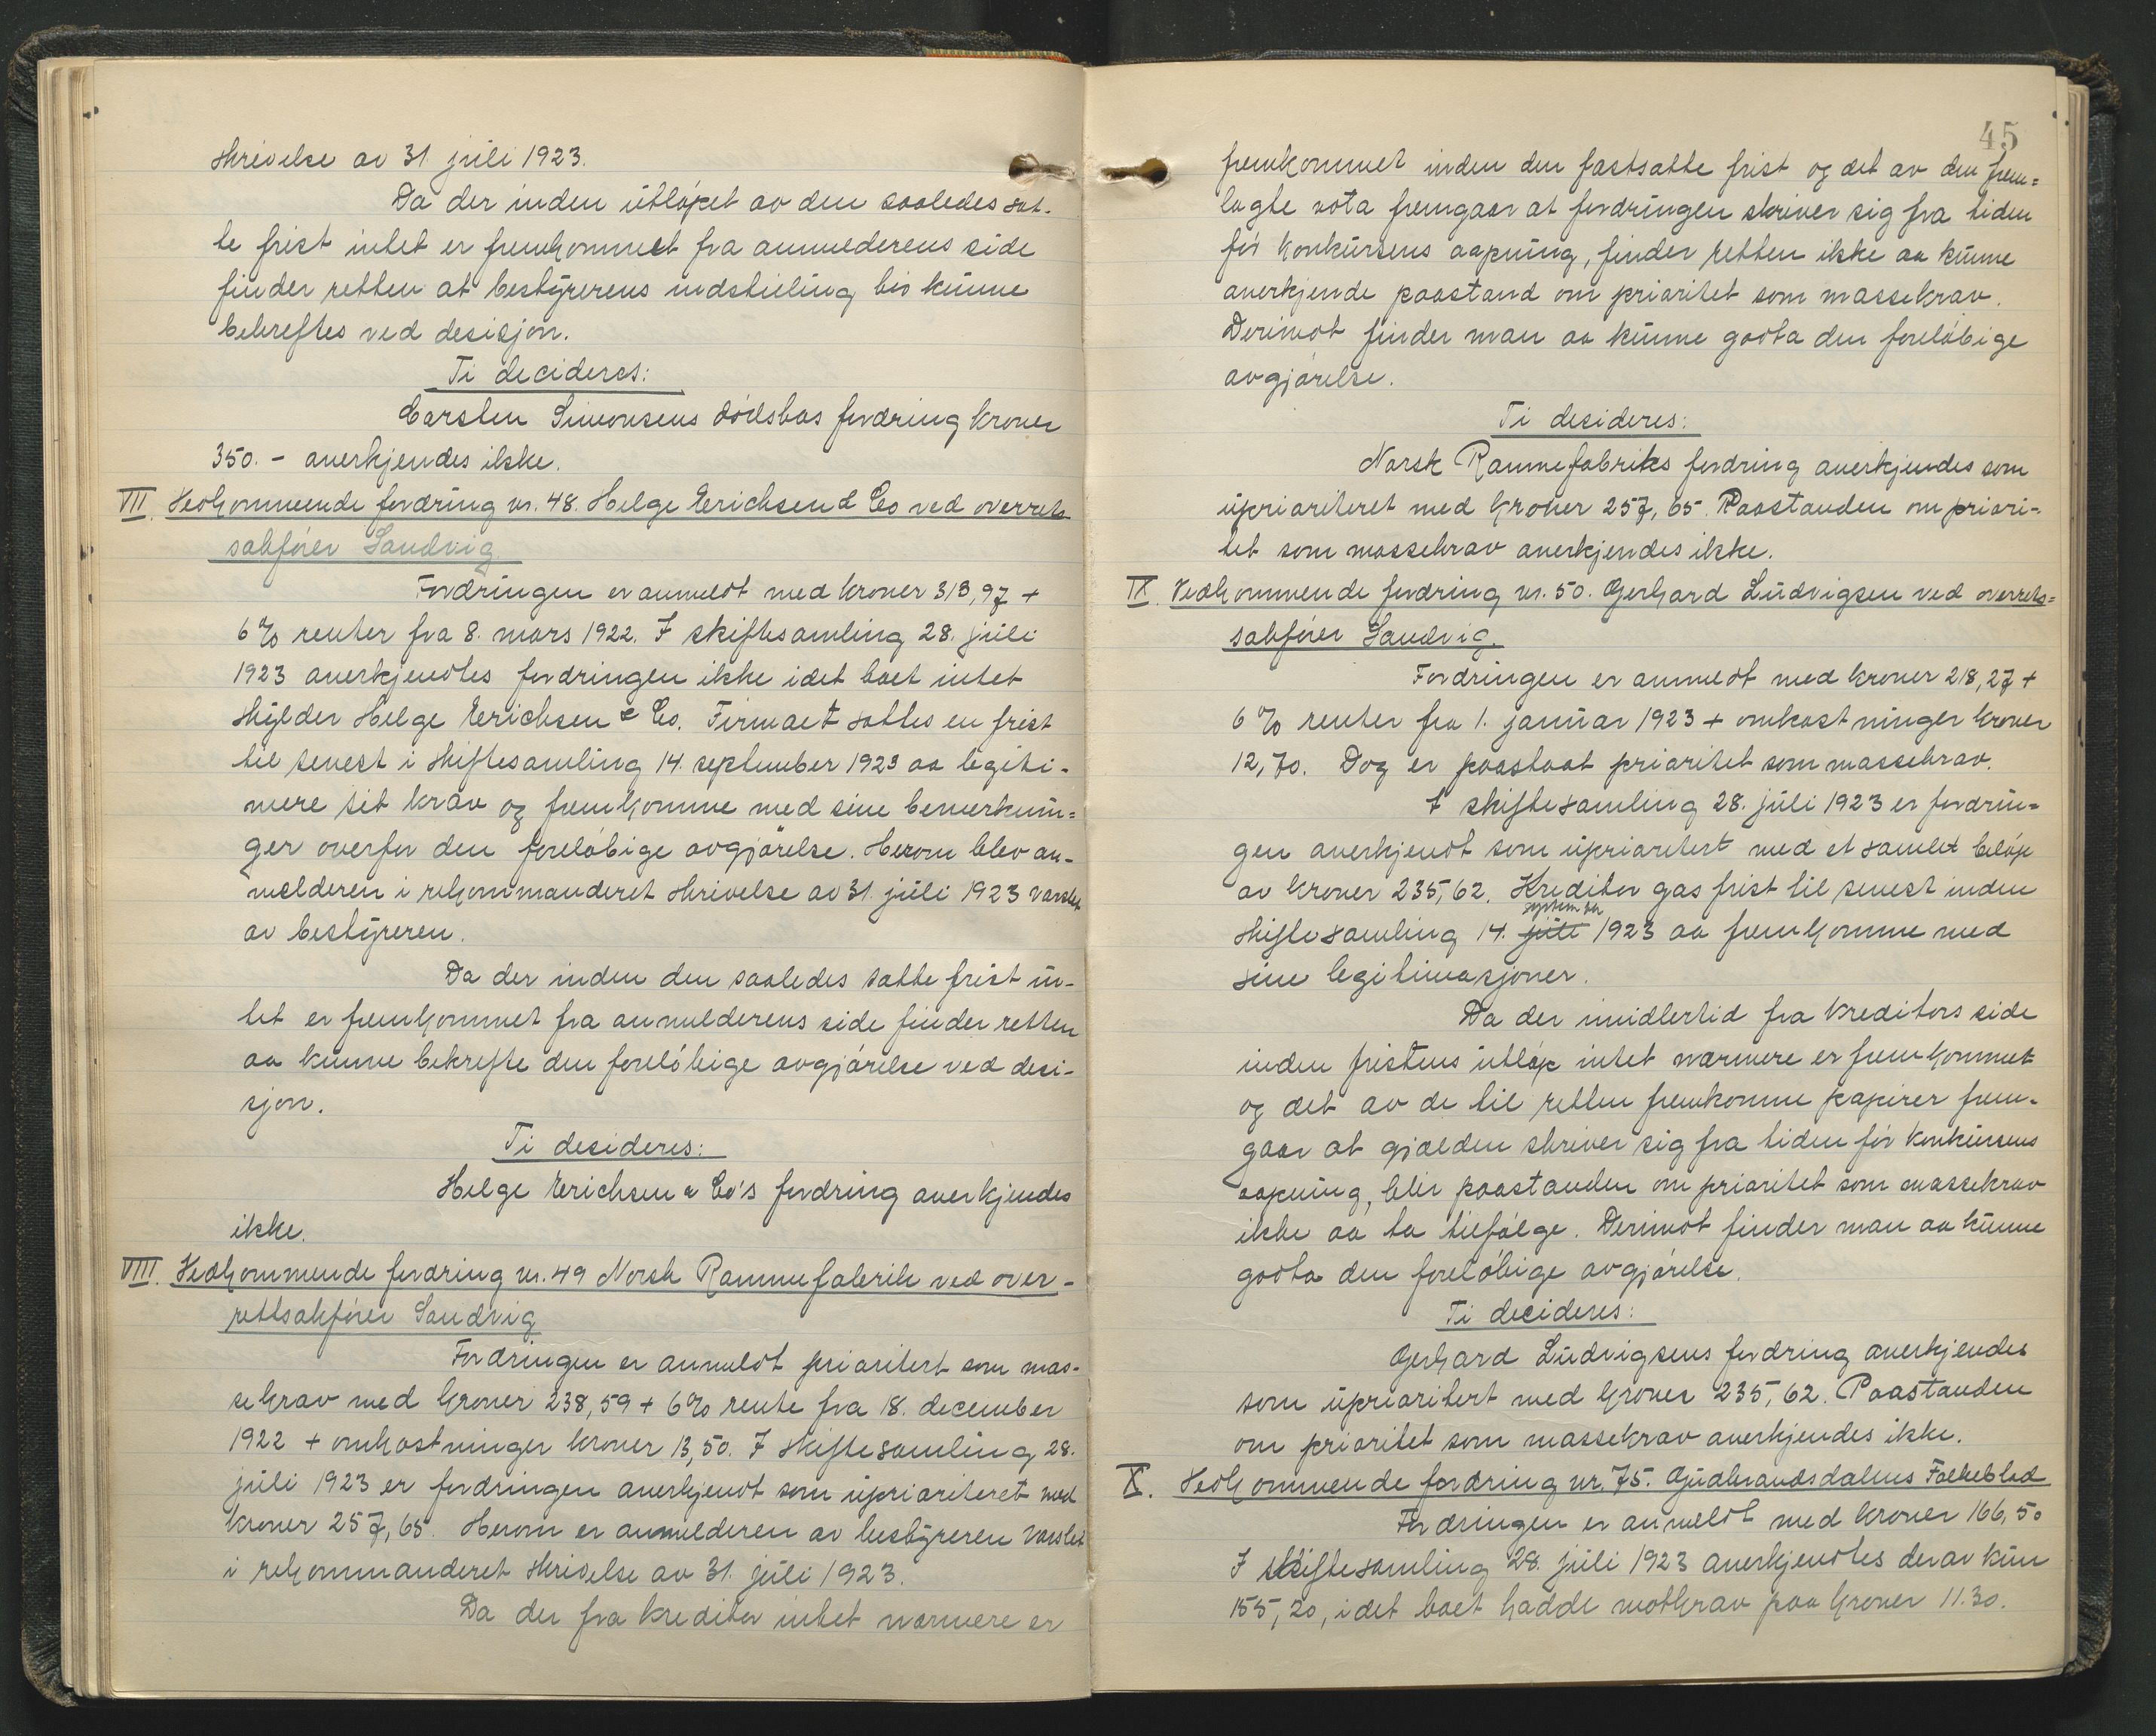 skrivelse av 31 juli 1923.
Da der inden utløpet av den saaledes sat-
te frist intet er fremkommet fra anmelderens side
finder retten at bestyrerens indstilling bør kunne
bekreftes ved desisjon.
Ti decideres:
Carsten Simonsens dødsbos fordring kroner
350.- anerkjendes ikke.
VII. Vedkommende fordring nr. 48. Helge Erichsen & Co ved overrets
sakfører Sandvig
Fordringen er anmeldt med kroner 313,97 +
6% renter fra 8. mars 1922. I skiftesamling 28. juli
1923 anerkjendtes fordringen ikke idet boet intet
skylder Helge Erichsen & Co. Firmaet sattes en frist
til senest i skiftesamling 14. september 1923 aa legiti-
mere sit krav og fremkomme med sine bemerknin=
ger overfor den foreløbige avgjørelse. Herom blev an-
melderen i rekommanderet skrivelse av 31. juli 1923 varslet
av bestyreren.
Da der inden den saaledes satte frist in-
tet er fremkommet fra anmelderens side finder retten
aa kunne bekrefte den foreløbige avgjørelse ved desi-
sjon.
Ti desideres:
Helge Erichsen & Co's fordring anerkjendes
ikke.
VIII. Vedkommende fordring nr. 49 Norsk Rammefabrik ved over-
rettsakfører Sandvig
Fordringen er anmeldt prioritert som mas-
sekrav med kroner 238,59 + 6% rente fra 18. december
1922 + omkostninger kroner 13,50. I skiftesamling 28.
juli 1923 er fordringen anerkjendt som uprioriteret med
kroner 257,65. Herom er anmelderen av bestyreren varslet
i rekommanderet skrivelse av 31. juli 1923.
Da der fra kreditor intet nærmere er
45
fremkommet inden den fastsatte frist og det av den frem=
lagte nota fremgaar at fordringen skriver sig fra tiden
før konkursens aapning, finder retten ikke aa kunne
anerkjende paastand om prioritet som massekrav.
Derimot finder man aa kunne godta den foreløbige
avgjørelse.
Ti desideres:
Norsk Rammefabriks fordring anerkjendes som
uprioriteret med kroner 257,65. Paastanden om priori-
tet som massekrav anerkjendes ikke.
IX. Vedkommende fordring nr. 50. Gerhard Ludvigsen ved overrets=
sakfører Sandvig.
Fordringen er anmeldt med kroner 218,27 +
6% renter fra 1. januar 1923 + omkostninger kroner
12,70. Dog er paastaat prioritet som massekrav.
I skiftesamling 28. juli 1923 er fordrin=
gen anerkjendt som uprioritert med et samlet beløp
av kroner 235,62. Kreditor gas frist til senest inden
september
skiftesamling 14. juli 1923 aa fremkomme med
sine legitimasjoner.
Da der imidlertid fra kreditors side
inden fristens utløp intet nærmere er fremkommet
og det av de til retten fremkomne papirer frem-
gaar at gjælden skriver sig fra tiden før konkursens
aapning, blir paastanden om prioritet som massekrav
ikke aa ta tilfølge. Derimot finder man aa kunne
godta den foreløbige avgjørelse.
Ti decideres:
Gerhard Ludvigsens fordring anerkjendes
som uprioritert med kroner 235,62. Paastanden
om prioritet som massekrav anerkjendes ikke.
X. Vedkommende fordring nr. 75. Gudbrandsdalens Folkeblad
Fordringen er anmeldt med kroner 166,50
I skiftesamling 28. juli 1923 anerkjendtes derav kun
155,20, idet boet hadde motkrav paa kroner 11.30.